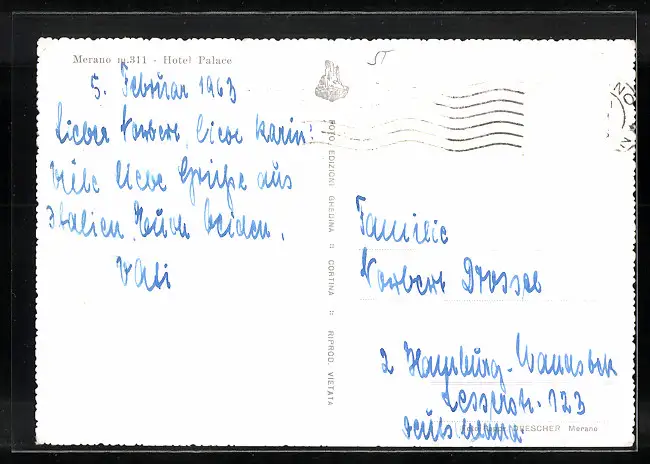 Merano m.311 - Hotel Palace
5. Februar 1963
Lieber Norbert, liebe Karin!
Viele liebe Grüße aus
Italien. Euch beiden.
Vati
FOTO EDIZIONI GHEDINA CORTINA RIPROD. VIETATA
Familie
Norbert Drossel
2 Hamburg-Wandsbek
Lesserstr. 123
Deutschland.
DRESCHER Merano